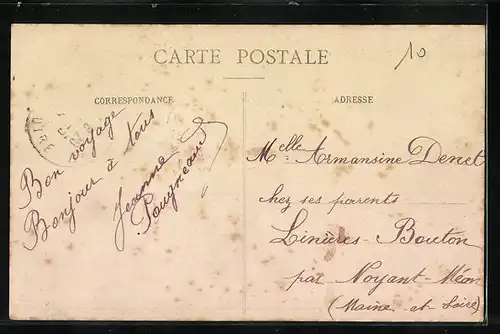 CARTE POSTALE
10
CORRESPONDANCE
ADRESSE
Bon voyage
Bonjour à tous
Jeanne
Melle Armansine Denet
chez ses parents
Linières-Bouton
par Noyant-Méon
(Maine et Loire)